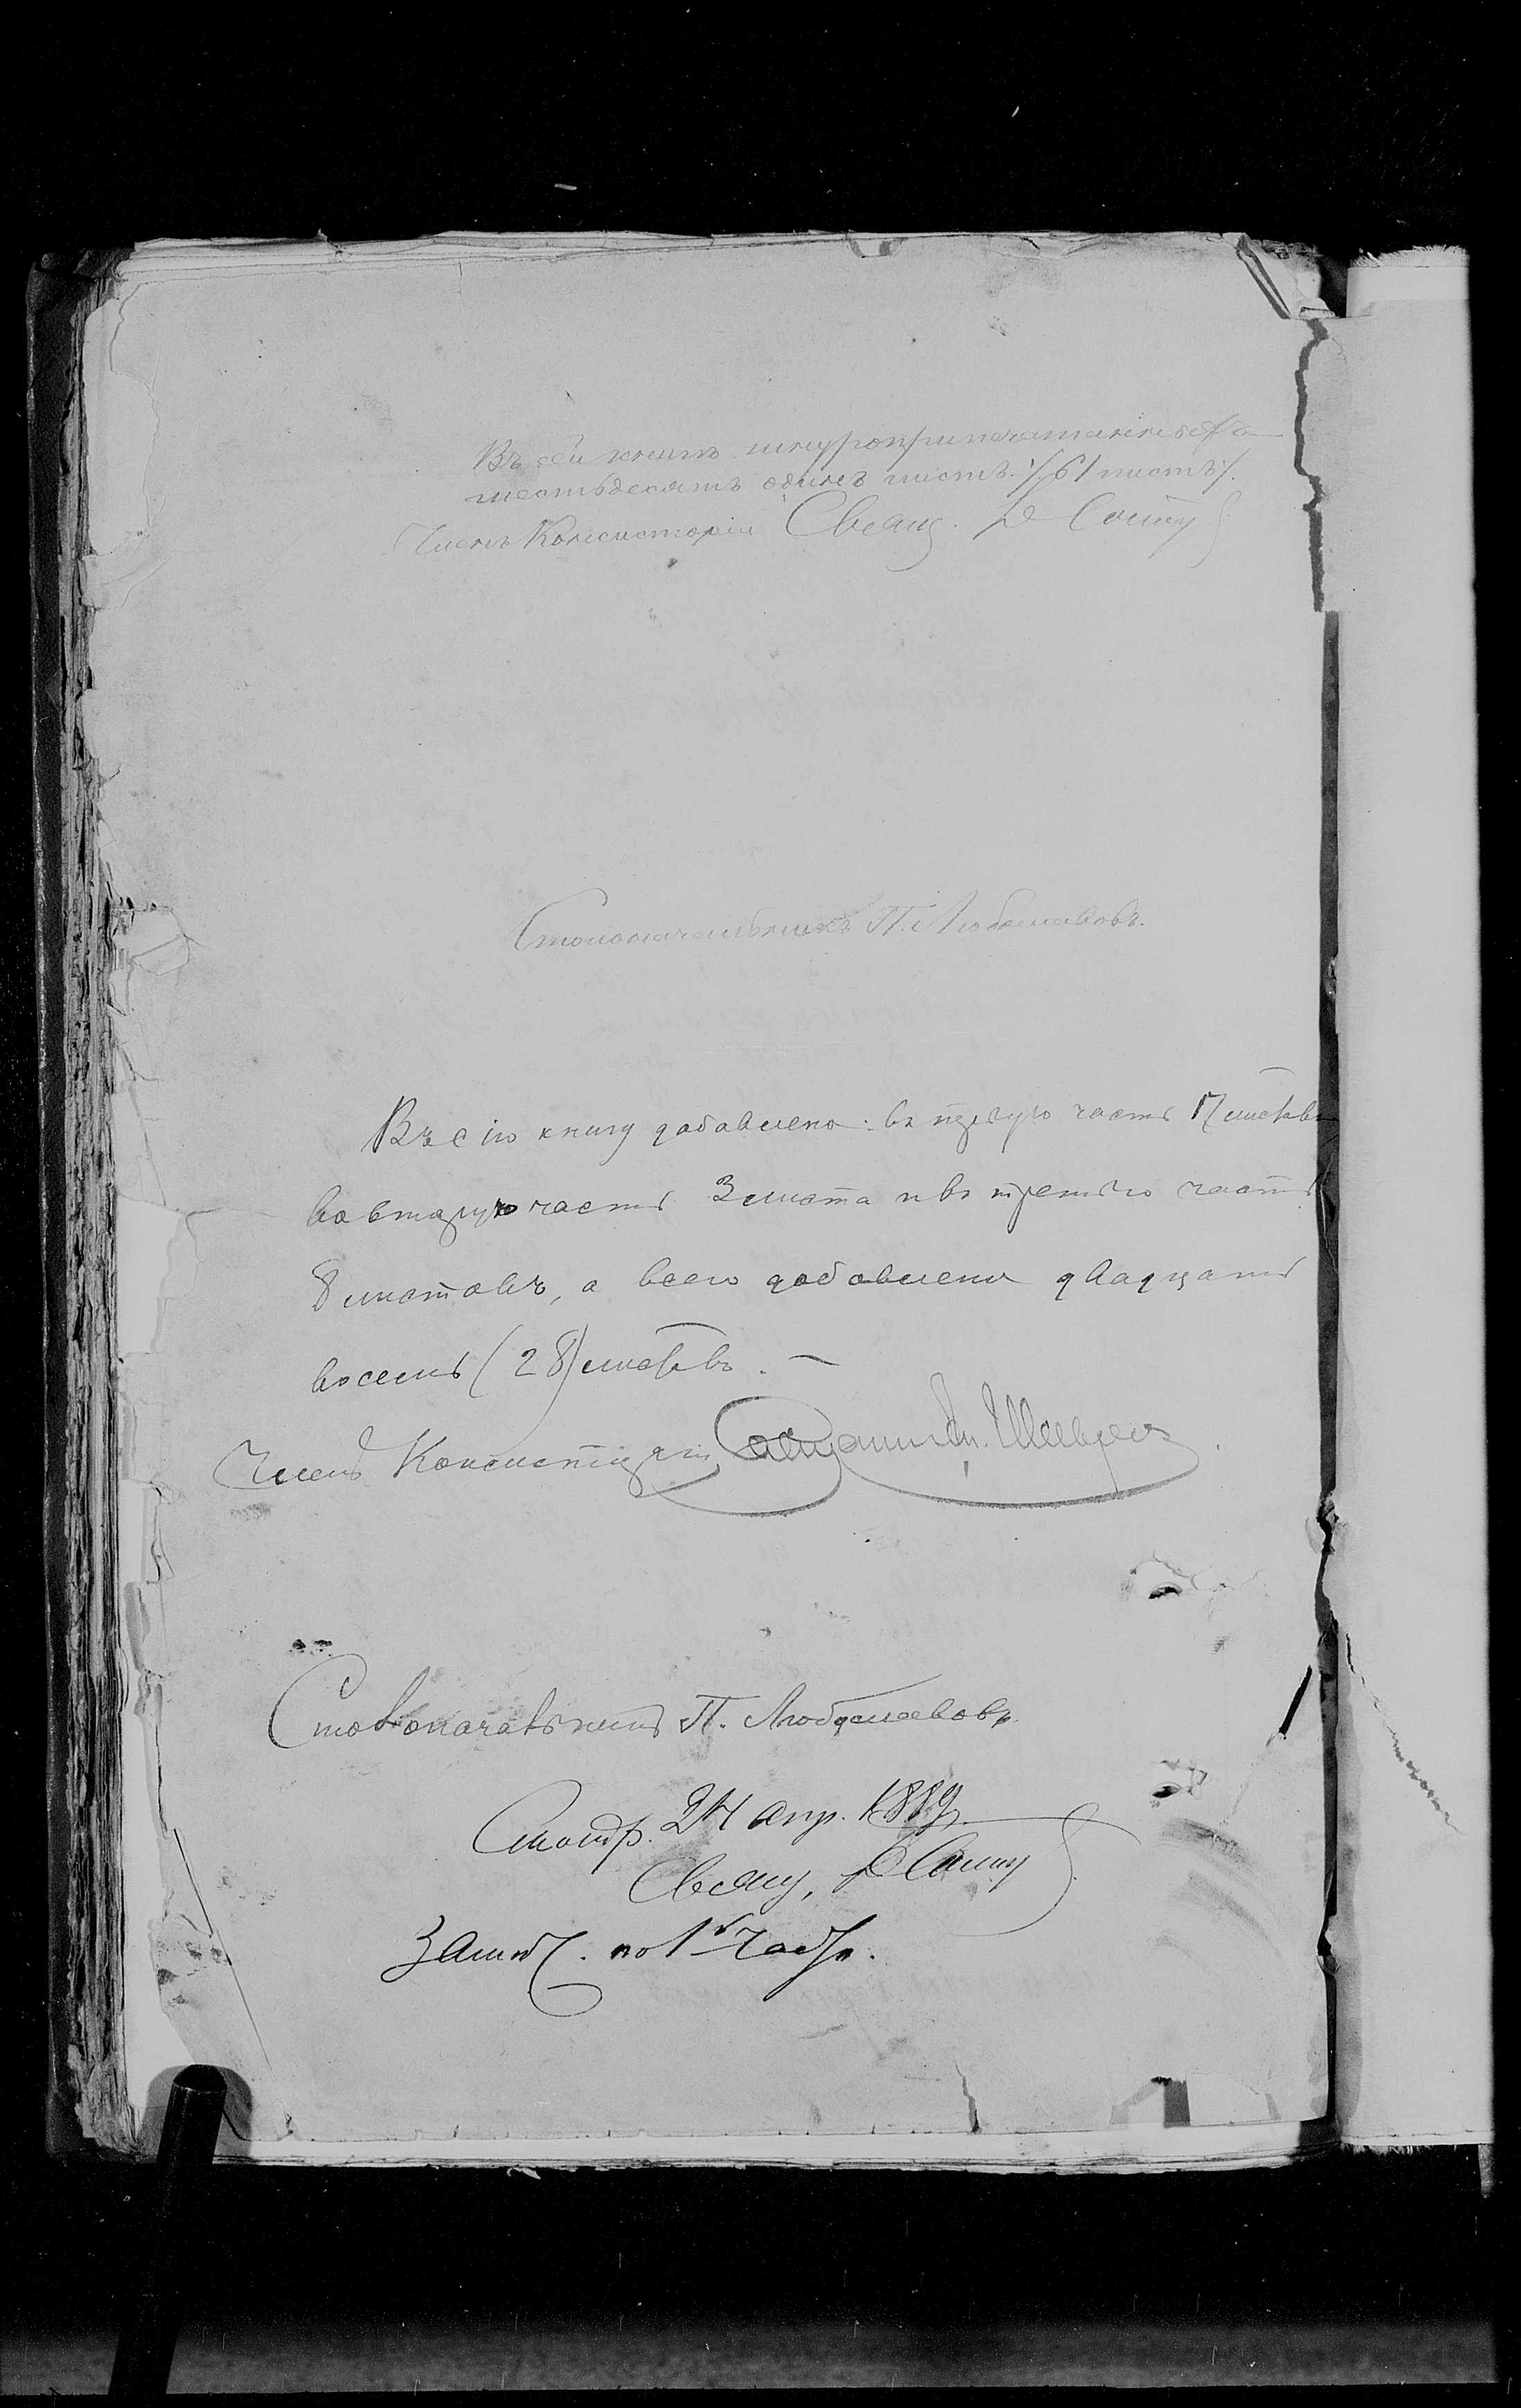 Въ сей книгѣ шнуроприпечатанныхъ
шестьдесятъ одинъ листъ ./. 61 листъ ./.
Членъ Консисторіи Свящ.
Столоначальникъ П. Любославовъ.
Въ сію книгу добавлено: въ первую часть 17 листовъ
во вторую часть 3 листа и въ третью часть
8 листовъ, а всего добавлено двадцать
восемь (28) листовъ. —
Членъ Консисторіи, Священникъ
Столоначальникъ П. Любославовъ
Смотр. 24 апр. 1889 г.
Свящ.
Замѣч. по 1й части.